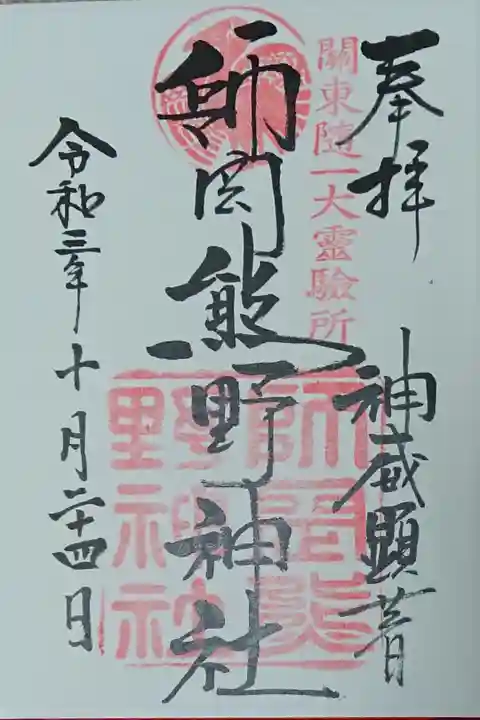 奉拝
神威顕著
關東隨一大靈驗所
師岡熊野神社
師岡熊
野神社
令和三年十月二十四日